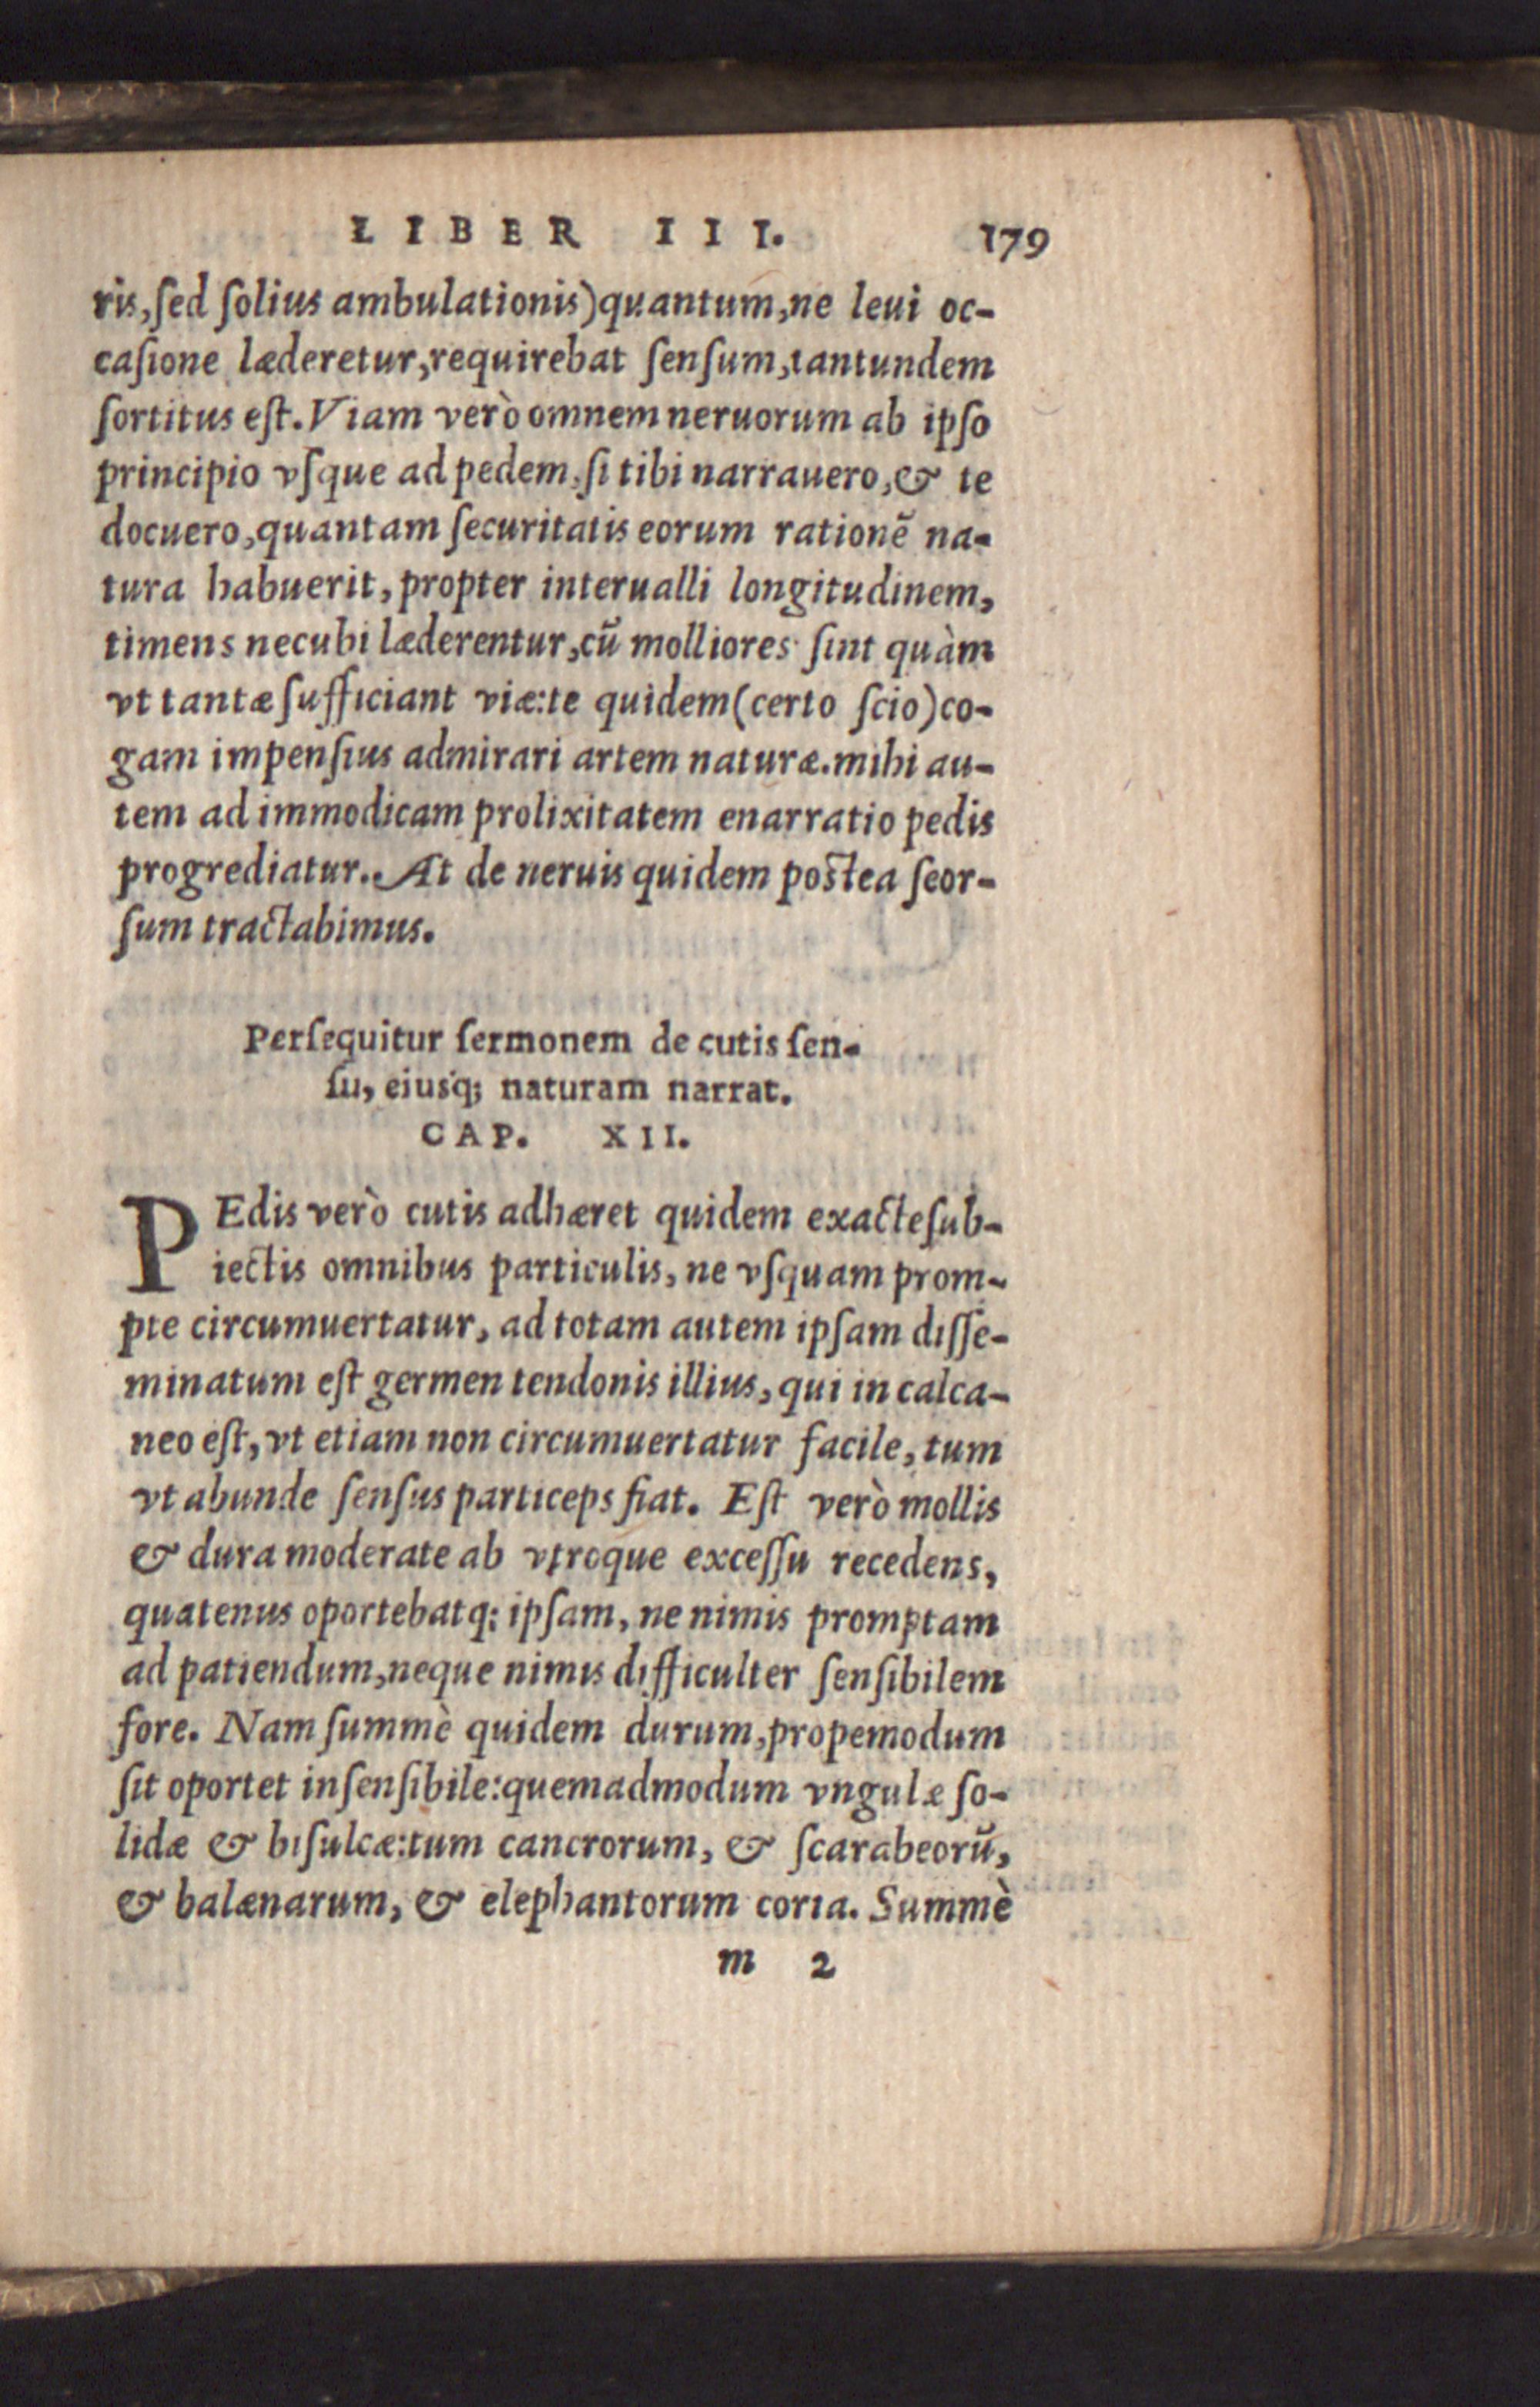 LIBER III. 179
ris, ſed ſolius ambulationis) quantum, ne leui oc-
caſione læderetur, requirebat ſenſum, tantundem
ſortitus eſt. Viam verò omnem neruorum ab ipſo
principio vſque ad pedem, ſi tibi narrauero, & te
docuero, quantam ſecuritatis eorum rationē na-
tura habuerit, propter interualli longitudinem,
timens necubi læderentur, cū molliores ſint quàm
vt tantæ ſufficiant viæ: te quidem (certo ſcio) co-
gam impenſius admirari artem naturæ. mihi au-
tem ad immodicam prolixitatem enarratio pedis
progrediatur. At de neruis quidem poſtea ſeor-
ſum tractabimus.
Perſequitur ſermonem de cutis ſen-
ſu, eiusq; naturam narrat.
CAP. XII.
PEdis verò cutis adhæret quidem exacte ſub-
iectis omnibus particulis, ne vſquam prom-
pte circumuertatur, ad totam autem ipſam diſſe-
minatum eſt germen tendonis illius, qui in calca-
neo eſt, vt etiam non circumuertatur facile, tum
vt abunde ſenſus particeps fiat. Eſt verò mollis
& dura moderate ab vtroque exceſſu recedens,
quatenus oportebatq; ipſam, ne nimis promptam
ad patiendum, neque nimis difficulter ſenſibilem
fore. Nam ſummè quidem durum, propemodum
ſit oportet inſenſibile: quemadmodum vngulæ ſo-
lidæ & biſulcæ: tum cancrorum, & ſcarabeorū,
& balænarum, & elephantorum coria. Summè
m 2